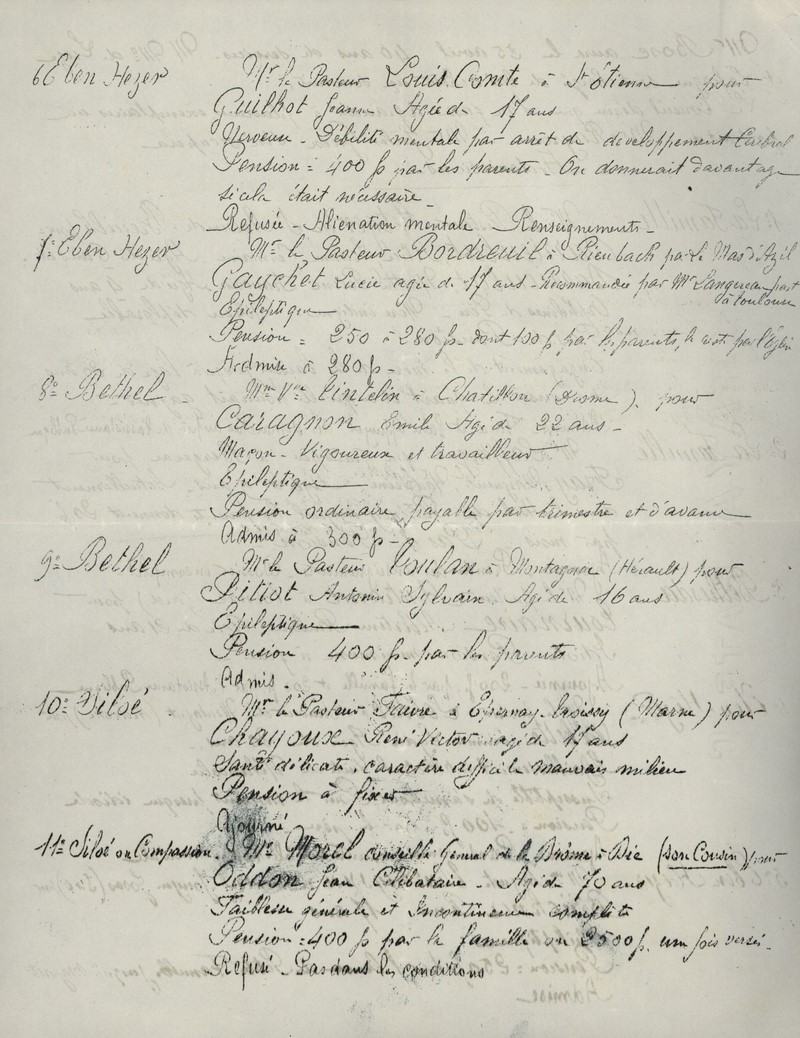 6 Eben Hezer Mr le Pasteur Louis Comte à St Etienne pour
Guilhot Jeanne Agée de 17 ans
Nerveuse - Débilité mentale par arrêt de développement Cérébral
Pension = 400 f par les parents - On donnerait davantage
si cela était nécessaire -
Refusée - Aliénation mentale Renseignements -
7º Eben Hezer Mr le Pasteur Bordreuil à Rieubach par Le Mas d'Azil
Gauchet Lucie agée de 17 ans - Recommandée par Mr past
à Toulouse
Epileptique
Pension = 250 à 280 f - dont 100 f par les parents, le reste par l'Eglise
Admise à 280 f -
8º Bethel - Mme Vve à Chatillon (Drome) pour
Caragnon Emile Agé de 22 ans -
Maçon - Vigoureux et travailleur
Epileptique
Pension ordinaire payable par trimestre et d'avance
Admis à 300 f -
9º Bethel Mr le Pasteur à Montagnac (Hérault) pour
Antonin Sylvain Agé de 16 ans
Epileptique
Pension 400 f par les parents
Admis.
10º Siloé. Mr le Pasteur Faivre à Epernay (Marne) pour
Chayoux René Victor agé de 17 ans
Santé délicate, caractère difficile mauvais milieu
Pension à fixer
Ajourné
11º Siloé ou Compassion. Mr Morel conseiller Général de la Drôme à Die (son Cousin) pour
Oddon Jean Célibataire - Agé de 70 ans
Faiblesse générale et Incontinence complète
Pension = 400 f par la famille ou 2500 f. une fois versé -
Refusé - Pas dans les conditions